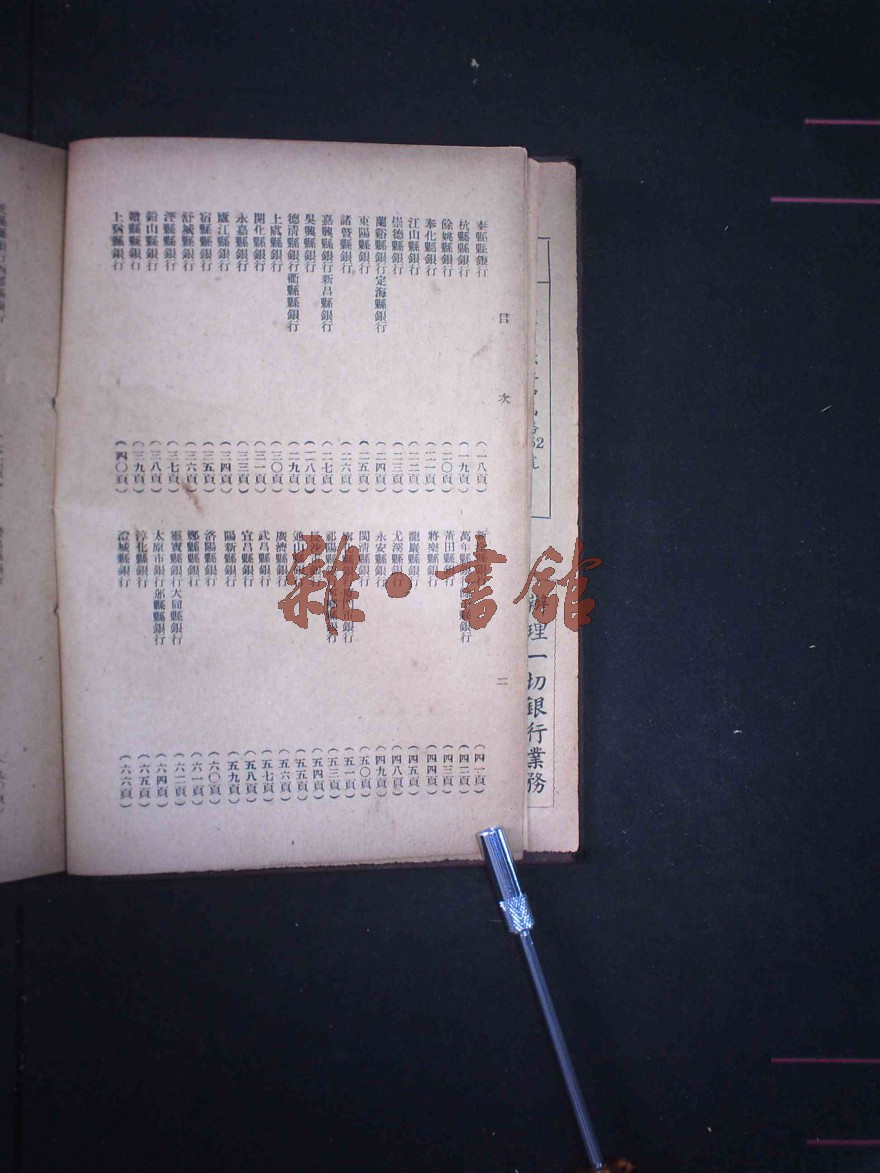 目次
泰縣縣銀行 (一八頁)
杭縣縣銀行 (一九頁)
餘姚縣銀行 (二〇頁)
奉化縣銀行 (二一頁)
江山縣銀行 (二二頁)
崇德縣銀行 (二三頁)
蘭谿縣銀行定海縣銀行 (二四頁)
東陽縣銀行 (二五頁)
諸暨縣銀行 (二六頁)
嘉興縣銀行新昌縣銀行 (二七頁)
吳興縣銀行 (二八頁)
德清縣銀行衢縣縣銀行 (二九頁)
上虞縣銀行 (三〇頁)
開化縣銀行 (三一頁)
永嘉縣銀行 (三三頁)
廬江縣銀行 (三四頁)
宿縣縣銀行 (三五頁)
舒城縣銀行 (三六頁)
涇縣縣銀行 (三七頁)
鉛山縣銀行 (三八頁)
贛縣縣銀行 (三九頁)
上猶縣銀行 (四〇頁)
(四一頁)
萬年縣 縣銀行 (四二頁)
莆田縣銀行 (四三頁)
將樂縣銀行 (四四頁)
龍巖縣銀行 (四五頁)
尤溪縣銀行 (四八頁)
永安縣銀行 (四九頁)
閩清縣銀行 (五〇頁)
銀行 (五一頁)
祁陽縣 銀行 (五三頁)
長沙 (五四頁)
通山 (五五頁)
廣濟縣 (五六頁)
武昌縣銀行 (五七頁)
宜昌縣銀行 (五八頁)
陽新縣銀行 (五九頁)
洛陽縣銀行 (六〇頁)
鄭縣縣銀行 (六一頁)
靈寶縣銀行大同縣銀行 (六二頁)
太原市銀行祁縣縣銀行 (六四頁)
淳化縣銀行 (六五頁)
澄城縣銀行 (六六頁)
二
辦理一切銀行業務
雜·書館